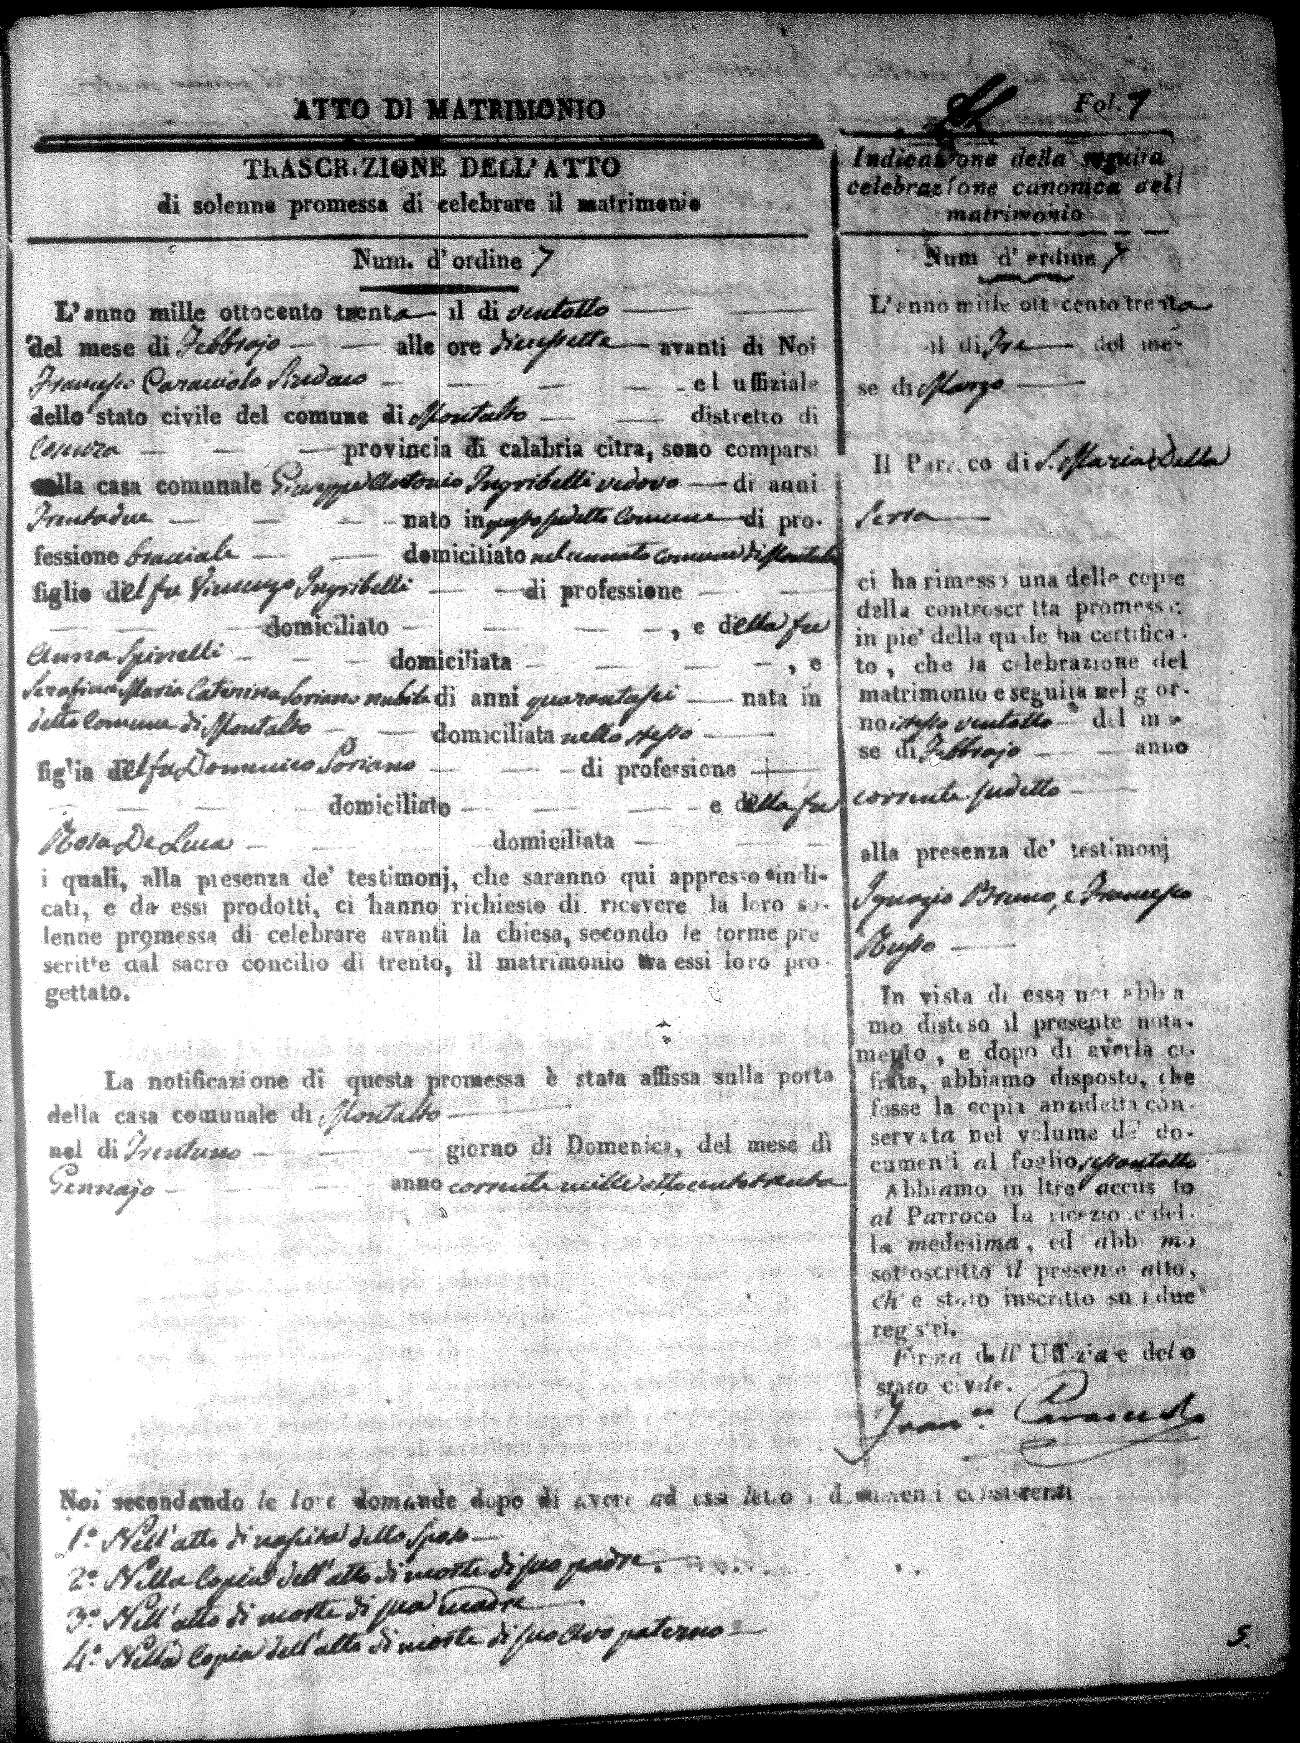 ATTO DI MATRIMONIO
Fol. 7
TRASCRIZIONE DELL'ATTO
di solenne promessa di celebrare il matrimonio
Num. d'ordine 7
L'anno mille ottocento trenta il di ventotto
del mese di Febbrajo alle ore diciassette avanti di Noi
Francesco Caracciolo Sindaco ed uffiziale
dello stato civile del comune di Montalto distretto di
Cosenza provincia di calabria citra, sono comparsi
nella casa comunale Giuseppe Antonio Ingribelli vedovo di anni
Trentadue nato in questo sudetto Comune di pro-
fessione bracciale domiciliato nel cennato Comune di Montalto
figlio del fu Vincenzo Ingribelli di professione
domiciliato , e della fu
Anna Spinelli domiciliata , e
Serafina Maria Caterina Soriano nubile di anni quarantasei nata in
detto Comune di Montalto domiciliata nello stesso
figlia del fu Domenico Soriano di professione
domiciliato e della fu
Rosa De Luca domiciliata
i quali, alla presenza de' testimonj, che saranno qui appresso indi-
cati, e da essi prodotti, ci hanno richiesto di ricevere la loro so-
lenne promessa di celebrare avanti la chiesa, secondo le forme pre
scritte dal sacro concilio di trento, il matrimonio tra essi loro pro-
gettato.
La notificazione di questa promessa è stata affissa sulla porta
della casa comunale di Montalto
nel di Trentuno giorno di Domenica, del mese di
Gennajo anno corrente mille ottocento trenta
Indicazione della seguita
celebrazione canonica dell
matrimonio
Num d'ordine 7
L'anno mille ottocento trenta
il di Tre del me-
se di Marzo
Il Parroco di S. Maria Della
Serra
ci ha rimesso una delle copie
della controscritta promessa
in pie' della quale ha certifica-
to, che la celebrazione del
matrimonio e seguita nel gior-
no stesso ventotto del me-
se di Febbrajo anno
corrente sudetto
alla presenza de' testimonj
Ignazio Bruno, e Francesco
Russo
In vista di essa noi abbia
mo disteso il presente nota-
mento, e dopo di averla ci-
frata, abbiamo disposto, che
fosse la copia anzidetta con-
servata nel volume de' do-
cumenti al foglio
Abbiamo inoltre accusato
al Parroco la ricezione del-
la medesima, ed abbiamo
sottoscritto il presente atto,
ch'e stato inscritto su i due
registri.
Firma dell' Uffiziale dello
stato civile.
Fran.co Caracciolo
Noi secondando le loro domande dopo di avere ad essi letto i documenti consistenti
1.° Nell'atto di nascita dello Sposo
2.° Nella Copia dell'atto di morte di suo padre.
3.° Nell'atto di morte di sua madre
4.° Nella Copia dell'atto di morte di suo avo paterno
5.